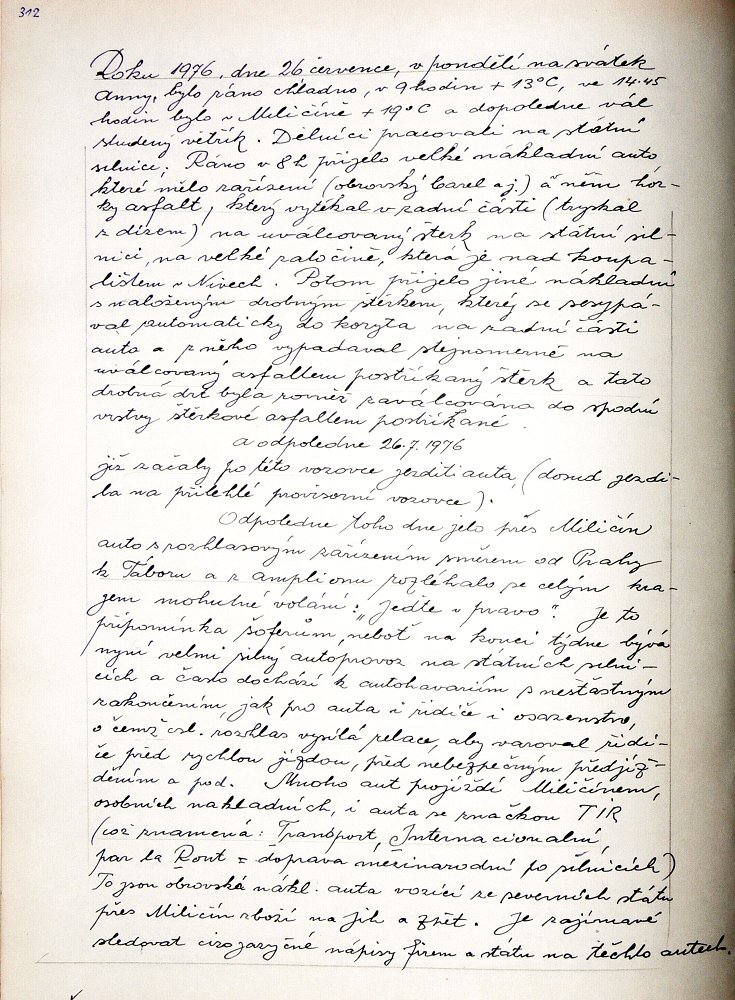 312
Roku 1976, dne 26 července, v pondělí na svátek
Anny, bylo ráno chladno, v 9 hodin + 13°C, ve 14.45
hodin bylo v Miličíně + 19°C a dopoledne vál
studený větřík. Dělníci pracovali na státní
silnici; Ráno v 8 h přijelo velké nákladní auto
které mělo zařízení (obrovský barel aj.) a v něm hor-
ký asfalt, který vytékal v zadní části (tryskal
z dizem) na uválcovaný šterk na státní sil-
nici, na velké zatočině, která je nad koupa-
lištem v Nivech. Potom přijelo jiné nákladní
s naloženým drobným štěrkem, který se sesypá-
val automaticky do koryta na zadní části
auta a z něho vypadával stejnoměrně na
uválcovaný asfaltem postříkaný štěrk a tato
drobná drť byla rovněž zaválcována do spodní
vrstvy štěrkové asfaltem postříkané.
a odpoledne 26.7.1976
již začaly po této vozovce jezditi auta, (dosud jezdi-
la na přilehlé provisorní vozovce).
Odpoledne toho dne jelo přes Miličín
auto s rozhlasovým zařízením směrem od Prahy
k Táboru a z amplionu rozléhalo se celým kra-
jem mohutné volání: „Jeďte v pravo". Je to
připomínka šoférům, neboť na konci týdne bývá
nyní velmi silný autoprovoz na státních silni-
cích a často dochází k autohavariím s nešťastným
zakončením, jak pro auta i řidiče i osazenstvo,
o čemž čsl. rozhlas vysílá relace, aby varoval řidi-
če před rychlou jízdou, před nebezpečným předjíž-
děním a pod. Mnoho aut projíždí Miličínem,
osobních nákladních, i auta se značkou TIR
(což znamená: Transport, Internacionalní
par la Rout = doprava mezinárodní po silnicích)
To jsou obrovská nákl. auta vozící ze severních států
přes Miličín zboží na jih a zpět. Je zajímavé
sledovat cizojazyčné nápisy firem a státu na těchto autech.